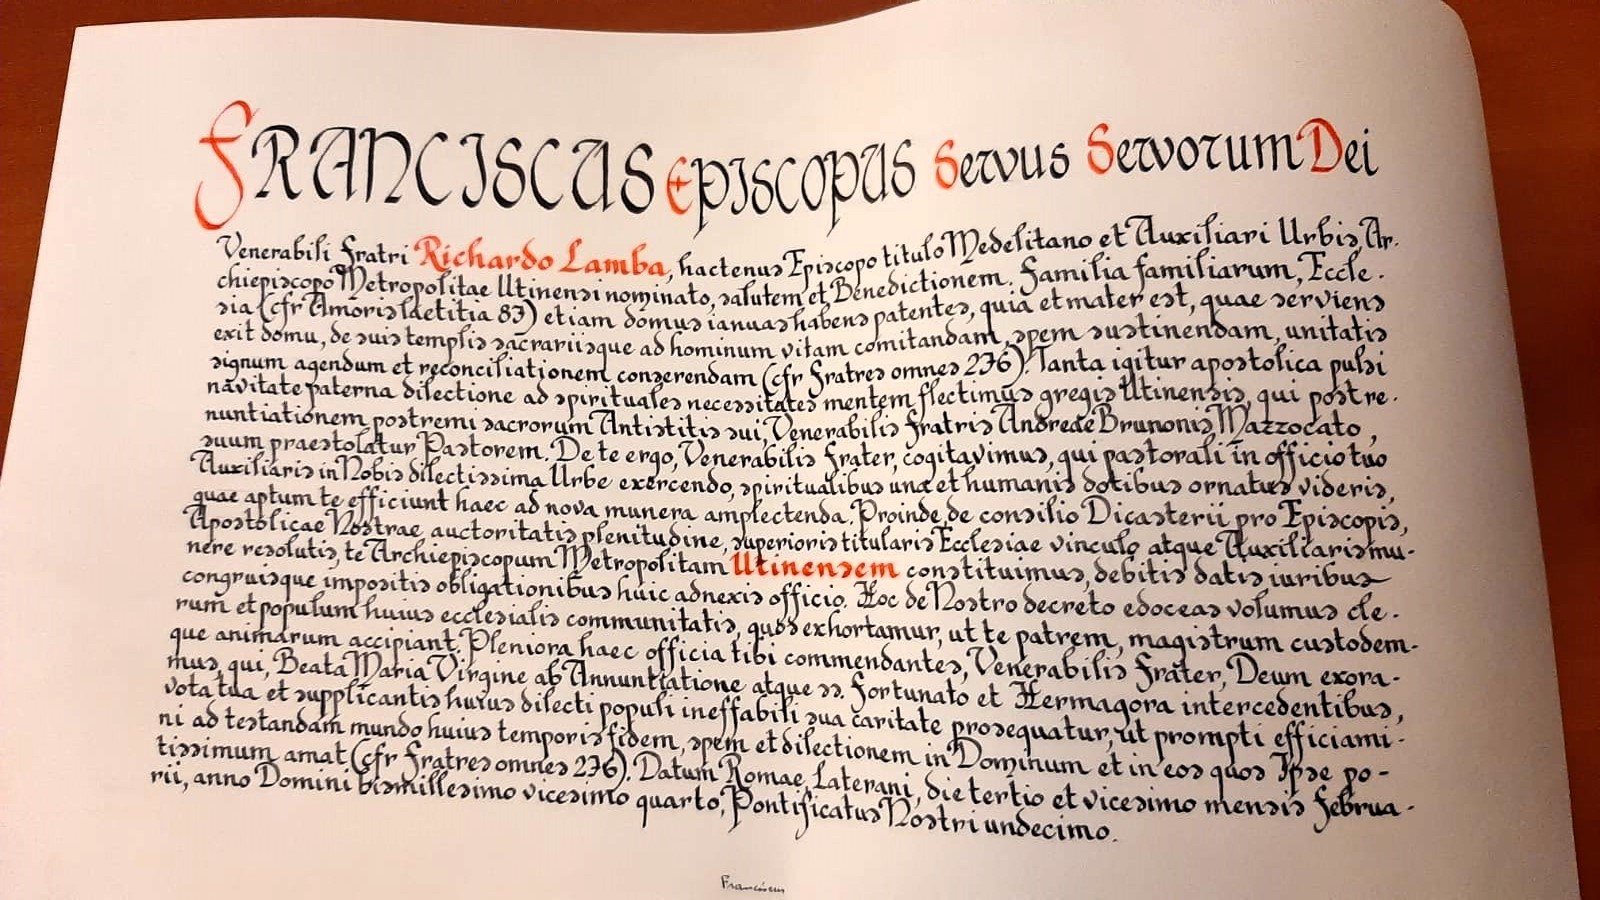 Franciscus Episcopus Servus Servorum Dei
Venerabili Fratri Richardo Lamba, hactenus Episcopo titulo Medelitano et Auxiliari Urbis, Ar-
chiepiscopo Metropolitae Utinensi nominato, salutem et Benedictionem. Familia familiarum, Eccle-
sia (cfr Amoris laetitia 83) etiam domus ianuas habens patentes, quia et mater est, quae serviens
exit domu, de suis templis sacrariisque ad hominum vitam comitandam, spem sustinendam, unitatis
signum agendum et reconciliationem conserendam (cfr Fratres omnes 276). Tanta igitur apostolica pulsi
navitate paterna dilectione ad spirituales necessitates mentem flectimus gregis Utinensis, qui post re-
nuntiationem postremi sacrorum Antistitis sui, Venerabilis Fratris Andreae Brunonis Mazzocato,
suum praestolatur Pastorem. De te ergo, Venerabilis Frater, cogitavimus, qui pastorali in officio tuo
Auxiliaris in Nobis dilectissima Urbe exercendo, spiritualibus una et humanis dotibus ornatus videris,
quae aptum te efficiunt haec ad nova munera amplectenda. Proinde, de consilio Dicasterii pro Episcopis,
Apostolicae Nostrae auctoritatis plenitudine, superioris titularis Ecclesiae vinculo atque Auxiliaris mu-
nere resolutis, te Archiepiscopum Metropolitam Utinensem constituimus, debitis datis iuribus
congruisque impositis obligationibus huic adnexis officio. Hoc de Nostro decreto edoceas volumus cle-
rum et populum huius ecclesialis communitatis, quos exhortamur, ut te patrem, magistrum custodem-
que animarum accipiant. Pleniora haec officia tibi commendantes, Venerabilis Frater, Deum exora-
mus, qui, Beata Maria Virgine ab Annuntiatione atque ss. Fortunato et Hermagora intercedentibus,
vota tua et supplicantis huius dilecti populi ineffabili sua caritate prosequatur, ut prompti efficiami-
ni ad testandam mundo huius temporis fidem, spem et dilectionem in Dominum et in eos quos Ipse po-
tissimum amat (cfr Fratres omnes 276). Datum Romae, Laterani, die tertio et vicesimo mensis Februa-
rii, anno Domini bismillesimo vicesimo quarto, Pontificatus Nostri undecimo.
Franciscus